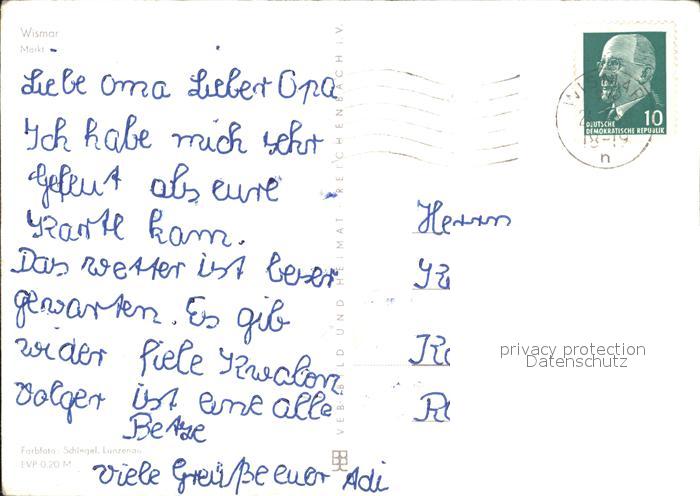 Wismar
Markt
Liebe Oma Lieber Opa
Ich habe mich sehr
gefeut als eure
Karte kam.
Das wetter ist beser
gewarten. Es gib
wider fiele Kwalen
Volger ist eine alle
Betze
viele Greüße euer Adi
Farbfoto: Schlegel, Lunzenau
EVP 0,20 M
VEB BILD UND HEIMAT REICHENBACH i.V.
WISMAR
18-19
n
10
DEUTSCHE
DEMOKRATISCHE REPUBLIK
Herrn
K
privacy protection
Datenschutz